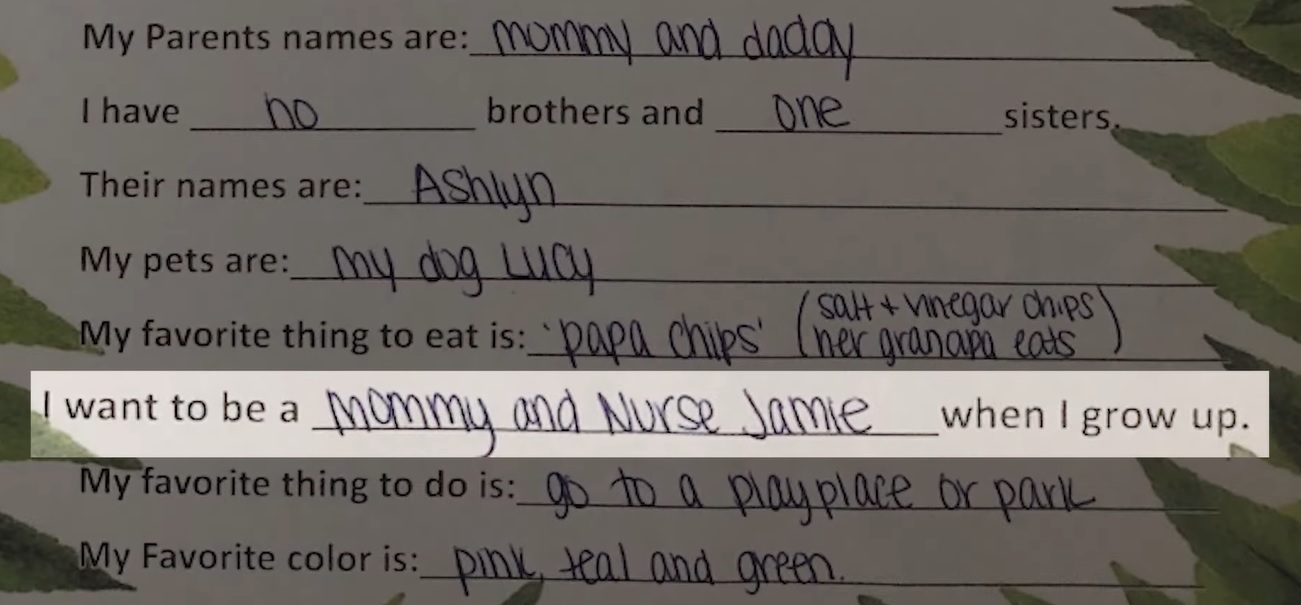 My Parents names are: mommy and daddy
I have no brothers and one sisters.
Their names are: Ashlyn
My pets are: my dog Lucy
My favorite thing to eat is: 'papa chips' (salt + vinegar chips
her grandpa eats)
I want to be a mommy and Nurse Jamie when I grow up.
My favorite thing to do is: go to a playplace or park
My Favorite color is: pink, teal and green.